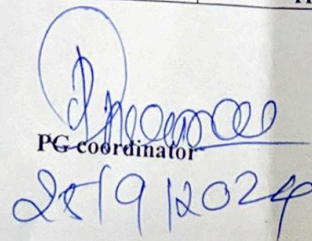 PG coordinator
25/9/2024